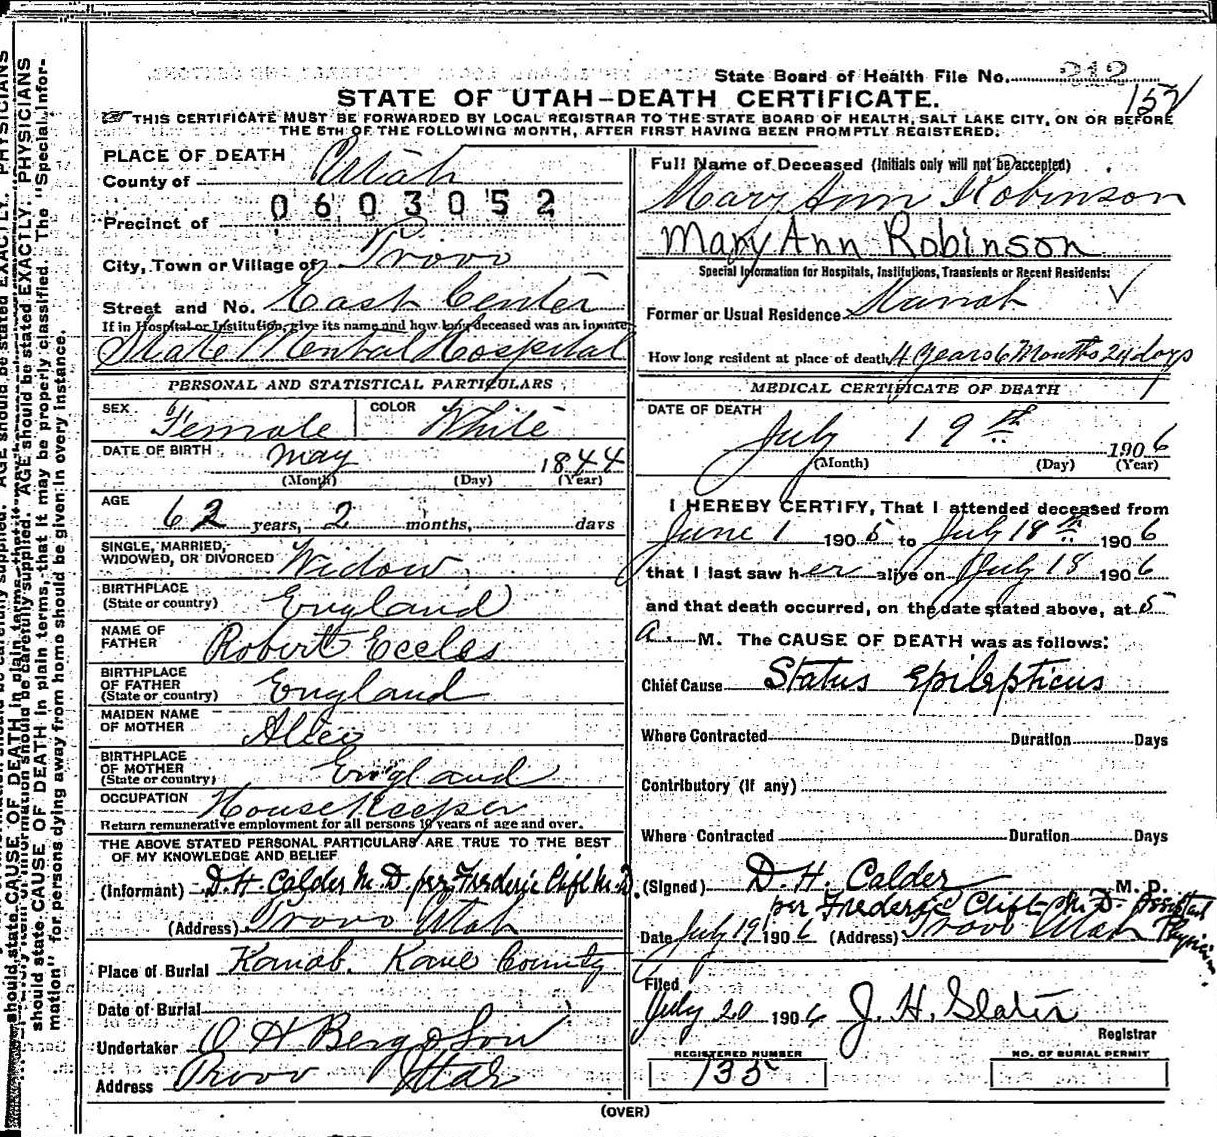 State Board of Health File No. 212
157
STATE OF UTAH—DEATH CERTIFICATE.
THIS CERTIFICATE MUST BE FORWARDED BY LOCAL REGISTRAR TO THE STATE BOARD OF HEALTH, SALT LAKE CITY, ON OR BEFORE
THE 5TH OF THE FOLLOWING MONTH, AFTER FIRST HAVING BEEN PROMPTLY REGISTERED.
PLACE OF DEATH
County of Utah
0603052
Precinct of
City, Town or Village of Provo
Street and No. East Center
If in Hospital or Institution, give its name and how long deceased was an inmate
State Mental Hospital
PERSONAL AND STATISTICAL PARTICULARS
SEX Female COLOR White
DATE OF BIRTH May 1844
(Month) (Day) (Year)
AGE 62 years, 2 months, days
SINGLE, MARRIED,
WIDOWED, OR DIVORCED Widow
BIRTHPLACE
(State or country) England
NAME OF
FATHER Robert Eccles
BIRTHPLACE
OF FATHER
(State or country) England
MAIDEN NAME
OF MOTHER
BIRTHPLACE
OF MOTHER
(State or country) England
OCCUPATION Housekeeper
Return remunerative employment for all persons 10 years of age and over.
THE ABOVE STATED PERSONAL PARTICULARS ARE TRUE TO THE BEST
OF MY KNOWLEDGE AND BELIEF
(Informant) D. H. Calder M. D per Frederic Clift M.D.
(Address) Provo Utah
Place of Burial Kanab. Kane County
Date of Burial
Undertaker O H Berg & Son
Address Provo Utah
Full Name of Deceased (Initials only will not be accepted)
Mary Ann Robinson
Mary Ann Robinson
Special Information for Hospitals, Institutions, Transients or Recent Residents:
Former or Usual Residence Kanab
How long resident at place of death 4 years 6 Months 24 days
MEDICAL CERTIFICATE OF DEATH
DATE OF DEATH
July 19th 1906
(Month) (Day) (Year)
I HEREBY CERTIFY, That I attended deceased from
June 1 1905 to July 18th 1906
that I last saw her alive on July 18 1906
and that death occurred, on the date stated above, at 5
a. M. The CAUSE OF DEATH was as follows:
Chief Cause Status Epilepticus
Where Contracted Duration Days
Contributory (If any)
Where Contracted Duration Days
(Signed) D. H. Calder M. D.
per Frederic Clift M. D. Assistant Physician
Date July 19 1906 (Address) Provo Utah
Filed
July 20 1906 J. H. Slater
Registrar
REGISTERED NUMBER
135
NO. OF BURIAL PERMIT
(OVER)
should state CAUSE OF DEATH in plain terms, that it may be properly classified. The "Special Infor-
mation" for persons dying away from home should be given in every instance.